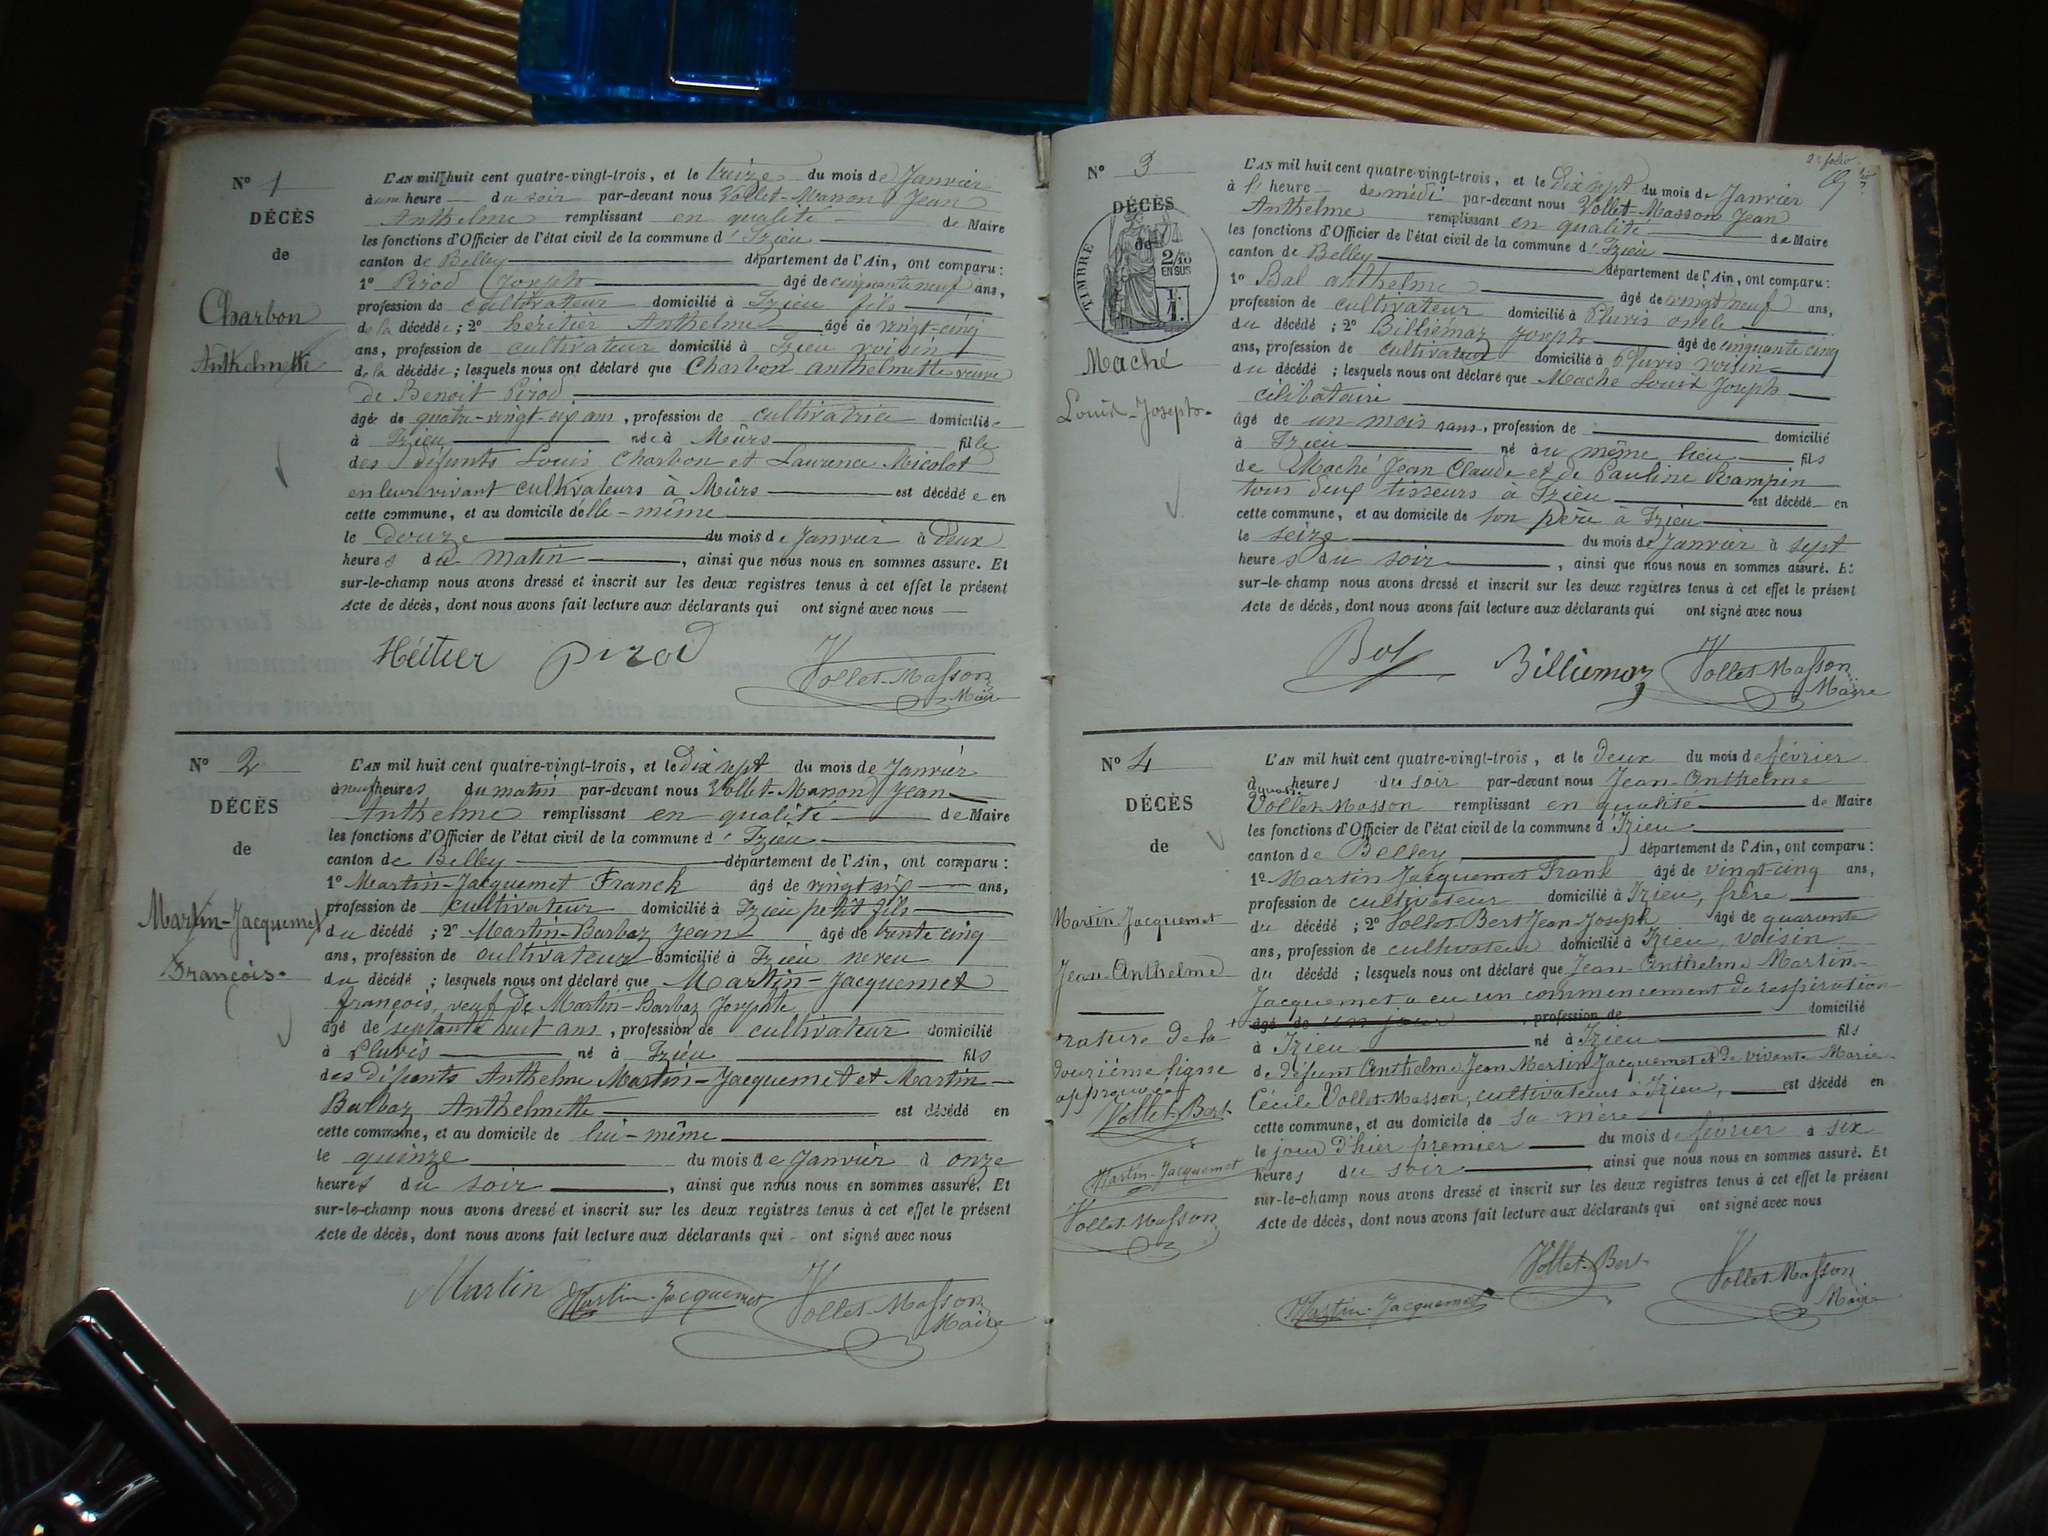 N° 1
DÉCÈS
de
Charbon
Anthelmette
L'AN mil huit cent quatre-vingt-trois, et le treize du mois de Janvier
à une heure du soir par-devant nous Vollet-Masson Jean
Anthelme remplissant en qualité de Maire
les fonctions d'Officier de l'état civil de la commune d'Izieu
canton de Belley département de l'Ain, ont comparu :
1° Pirod Joseph âgé de cinquante neuf ans,
profession de cultivateur domicilié à Izieu fils
de la décédée ; 2° héritier Anthelme âgé de vingt-cinq
ans, profession de cultivateur domicilié à Izieu voisin
de la décédée ; lesquels nous ont déclaré que Charbon anthelmette veuve
de Benoit Pirod
âgé de quatre-vingt-six ans, profession de cultivatrice domiciliée
à Izieu née à Mûrs fille
des défunts Louis Charbon et Laurence Micolot
en leur vivant cultivateurs à Mûrs est décédée en
cette commune, et au domicile d'elle-même
le douze du mois de Janvier à Deux
heures du matin, ainsi que nous nous en sommes assuré. Et
sur-le-champ nous avons dressé et inscrit sur les deux registres tenus à cet effet le présent
Acte de décès, dont nous avons fait lecture aux déclarants qui ont signé avec nous
Héitier Pirod Vollet-Masson
Maire
N° 2
DÉCÈS
de
Martin-Jacquemet
François
L'AN mil huit cent quatre-vingt-trois, et le dix sept du mois de Janvier
à neuf heures du matin par-devant nous Vollet-Masson Jean
Anthelme remplissant en qualité de Maire
les fonctions d'Officier de l'état civil de la commune d'Izieu
canton de Belley département de l'Ain, ont comparu :
1° Martin-Jacquemet Franck âgé de vingt six ans,
profession de cultivateur domicilié à Izieu petit fils
du décédé ; 2° Martin-Barbaz Jean âgé de trente cinq
ans, profession de cultivateur domicilié à Izieu neveu
du décédé ; lesquels nous ont déclaré que Martin-Jacquemet
françois, veuf de Martin-Barbaz Josephte
âgé de septante huit ans, profession de cultivateur domicilié
à Pluvis né à Izieu fils
des défunts Anthelme Martin-Jacquemet et Martin-
Barbaz Anthelmette est décédé en
cette commune, et au domicile de lui-même
le quinze du mois de Janvier à onze
heures du soir, ainsi que nous nous en sommes assuré. Et
sur-le-champ nous avons dressé et inscrit sur les deux registres tenus à cet effet le présent
Acte de décès, dont nous avons fait lecture aux déclarants qui ont signé avec nous
Martin Martin-Jacquemet Vollet-Masson
Maire
2e folio
N° 3
DÉCÈS
de
TIMBRE
2/10
EN SUS
Maché
Louis-Joseph
L'AN mil huit cent quatre-vingt-trois, et le Dix sept du mois de Janvier
à l'heure de midi par-devant nous Vollet-Masson Jean
Anthelme remplissant en qualité de Maire
les fonctions d'Officier de l'état civil de la commune d'Izieu
canton de Belley département de l'Ain, ont comparu :
1° Bal anthelme âgé de vingt neuf ans,
profession de cultivateur domicilié à Pluvis oncle
du décédé ; 2° Billiemaz Joseph âgé de cinquante cinq
ans, profession de cultivateur domicilié à Pluvis voisin
du décédé ; lesquels nous ont déclaré que Maché Louis Joseph
célibataire
âgé de un mois sans, profession de domicilié
à Izieu né au même lieu fils
de Maché Jean Claude et de Pauline Rampin
tous deux tisseurs à Izieu est décédé en
cette commune, et au domicile de son père à Izieu
le seize du mois de Janvier à sept
heures du soir, ainsi que nous nous en sommes assuré. Et
sur-le-champ nous avons dressé et inscrit sur les deux registres tenus à cet effet le présent
Acte de décès, dont nous avons fait lecture aux déclarants qui ont signé avec nous
Bal Billiemaz Vollet-Masson
Maire
N° 4
DÉCÈS
de
Martin-Jacquemet
Jean-Anthelme
rature de la
douzième ligne
approuvée
Vollet-Bert
Martin-Jacquemet
Vollet-Masson
L'AN mil huit cent quatre-vingt-trois, et le Deux du mois de février
à quatre heures du soir par-devant nous Jean-Anthelme
Vollet-Masson remplissant en qualité de Maire
les fonctions d'Officier de l'état civil de la commune d'Izieu
canton de Belley département de l'Ain, ont comparu :
1° Martin Jacquemet Frank âgé de vingt-cinq ans,
profession de cultivateur domicilié à Izieu, frère
du décédé ; 2° Vollet-Bert Jean-Joseph âgé de quarante
ans, profession de cultivateur domicilié à Izieu, voisin
du décédé ; lesquels nous ont déclaré que Jean-Anthelme Martin-
Jacquemet a eu un commencement de respiration
âgé de un jour, profession de domicilié
à Izieu né à Izieu fils
de défunt Anthelme Jean Martin Jacquemet et de vivante Marie
Cécile Vollet-Masson, cultivateurs à Izieu, est décédé en
cette commune, et au domicile de sa mère
le jour d'hier premier du mois de février à six
heures du soir, ainsi que nous nous en sommes assuré. Et
sur-le-champ nous avons dressé et inscrit sur les deux registres tenus à cet effet le présent
Acte de décès, dont nous avons fait lecture aux déclarants qui ont signé avec nous
Martin-Jacquemet Vollet-Bert Vollet-Masson
Maire